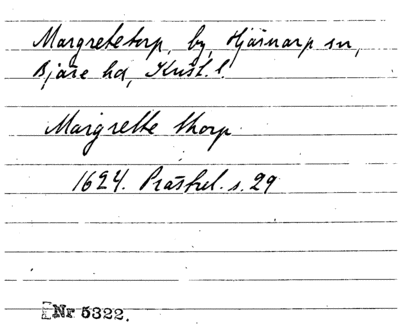 Margretetorp, by, Hjärnarp sn,
Bjäre hd, Krist. l.
Margrette thorp
1624. Prästrel. s. 29
Nr 5322.